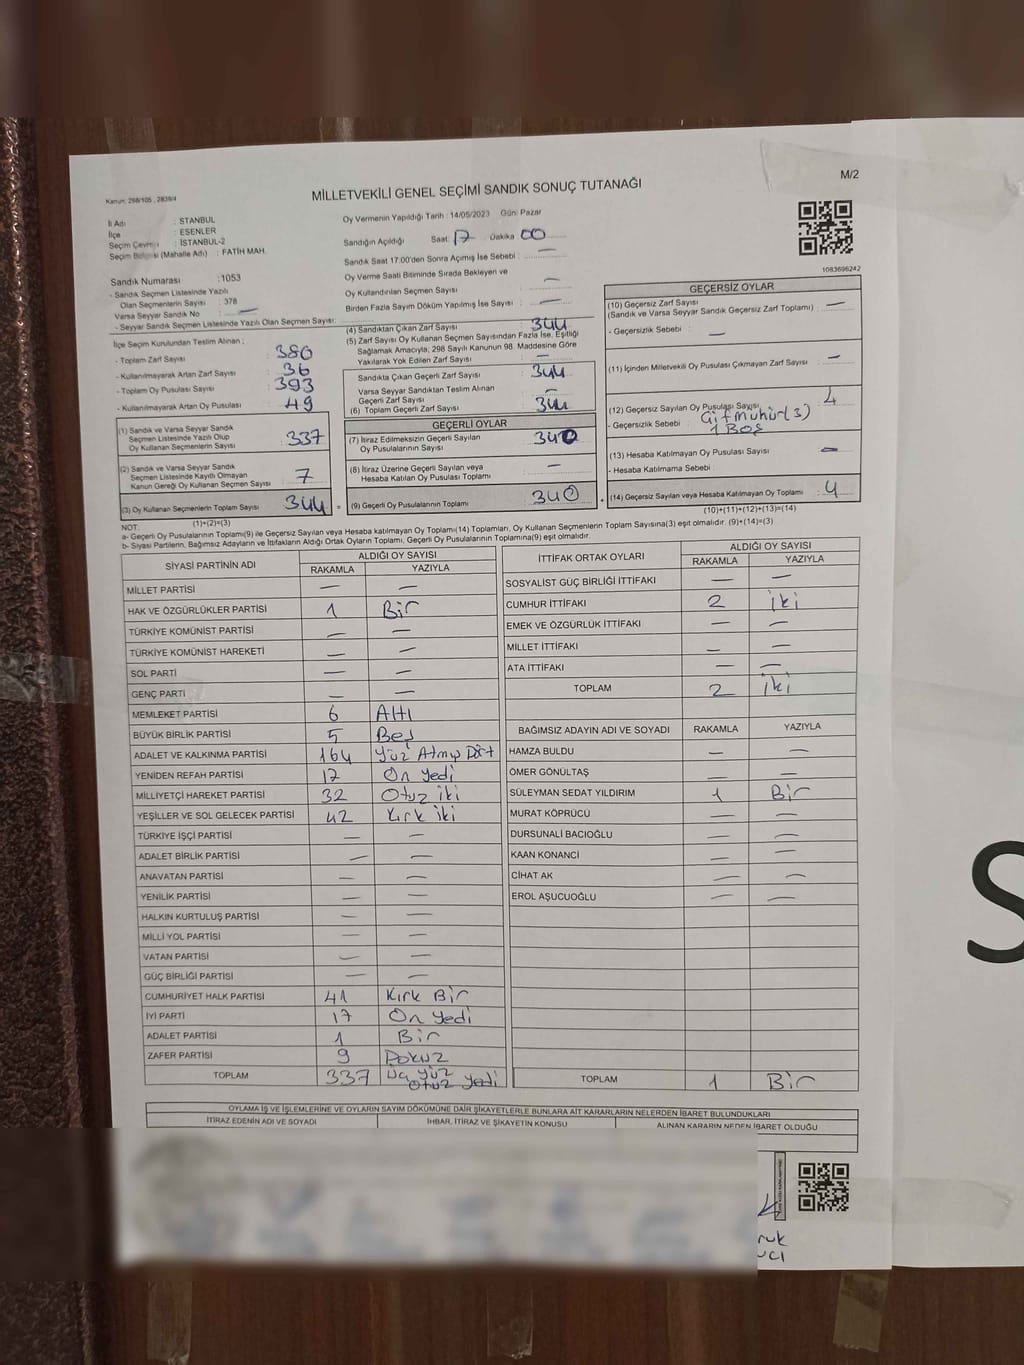 M/2
Kanun: 298/105 , 2839/4
MİLLETVEKİLİ GENEL SEÇİMİ SANDIK SONUÇ TUTANAĞI
İl Adı : STANBUL
İlçe : ESENLER
Seçim Çevresi : İSTANBUL-2
Seçim Bölgesi (Mahalle Adı) : FATİH MAH.
Oy Vermenin Yapıldığı Tarih : 14/05/2023 Gün: Pazar
Sandığın Açıldığı Saat: 17 Dakika 00
Sandık Saat 17:00'den Sonra Açımış İse Sebebi : —
Oy Verme Saati Bitiminde Sırada Bekleyen ve
Oy Kullandırılan Seçmen Sayısı : —
Birden Fazla Sayım Döküm Yapılmış İse Sayısı : —
1083696242
Sandık Numarası : 1053
- Sandık Seçmen Listesinde Yazılı
Olan Seçmenlerin Sayısı : 378
Varsa Seyyar Sandık No : —
- Seyyar Sandık Seçmen Listesinde Yazılı Olan Seçmen Sayısı:
İlçe Seçim Kurulundan Teslim Alınan ;
- Toplam Zarf Sayısı : 380
- Kullanılmayarak Artan Zarf Sayısı : 36
- Toplam Oy Pusulası Sayısı : 393
- Kullanılmayarak Artan Oy Pusulası : 49
(1) Sandık ve Varsa Seyyar Sandık
Seçmen Listesinde Yazılı Olup
Oy Kullanan Seçmenlerin Sayısı : 337
(2) Sandık ve Varsa Seyyar Sandık
Seçmen Listesinde Kayıtlı Olmayan
Kanun Gereği Oy Kullanan Seçmen Sayısı : 7
(3) Oy Kullanan Seçmenlerin Toplam Sayısı : 344
(1)+(2)=(3)
(4) Sandıktan Çıkan Zarf Sayısı : 344
(5) Zarf Sayısı Oy Kullanan Seçmen Sayısından Fazla İse, Eşitliği
Sağlamak Amacıyla, 298 Sayılı Kanunun 98. Maddesine Göre
Yakılarak Yok Edilen Zarf Sayısı : —
Sandıkta Çıkan Geçerli Zarf Sayısı : 344
Varsa Seyyar Sandıktan Teslim Alınan
Geçerli Zarf Sayısı : —
(6) Toplam Geçerli Zarf Sayısı : 344
GEÇERLİ OYLAR
(7) İtiraz Edilmeksizin Geçerli Sayılan
Oy Pusulalarının Sayısı : 340
(8) İtiraz Üzerine Geçerli Sayılan veya
Hesaba Katılan Oy Pusulaları Toplamı : —
(9) Geçerli Oy Pusulalarının Toplamı : 340
GEÇERSİZ OYLAR
(10) Geçersiz Zarf Sayısı : —
(Sandık ve Varsa Seyyar Sandık Geçersiz Zarf Toplamı)
- Geçersizlik Sebebi : —
(11) İçinden Milletvekili Oy Pusulası Çıkmayan Zarf Sayısı : —
(12) Geçersiz Sayılan Oy Pusulası Sayısı : 4
- Geçersizlik Sebebi : Çiftmühür(3)
1 Boş
(13) Hesaba Katılmayan Oy Pusulası Sayısı : —
- Hesaba Katılmama Sebebi
(14) Geçersiz Sayılan veya Hesaba Katılmayan Oy Toplamı : 4
(10)+(11)+(12)+(13)=(14)
NOT:
a- Geçerli Oy Pusulalarının Toplamı(9) ile Geçersiz Sayılan veya Hesaba katılmayan Oy Toplamı(14) Toplamları, Oy Kullanan Seçmenlerin Toplam Sayısına(3) eşit olmalıdır. (9)+(14)=(3)
b- Siyasi Partilerin, Bağımsız Adayların ve İttifakların Aldığı Ortak Oyların Toplamı, Geçerli Oy Pusulalarının Toplamına(9) eşit olmalıdır.
SİYASİ PARTİNİN ADI ALDIĞI OY SAYISI
RAKAMLA YAZIYLA
MİLLET PARTİSİ — —
HAK VE ÖZGÜRLÜKLER PARTİSİ 1 Bir
TÜRKİYE KOMÜNİST PARTİSİ — —
TÜRKİYE KOMÜNİST HAREKETİ — —
SOL PARTİ — —
GENÇ PARTİ — —
MEMLEKET PARTİSİ 6 Altı
BÜYÜK BİRLİK PARTİSİ 5 Beş
ADALET VE KALKINMA PARTİSİ 164 Yüz Atmış Dört
YENİDEN REFAH PARTİSİ 17 On yedi
MİLLİYETÇİ HAREKET PARTİSİ 32 Otuz iki
YEŞİLLER VE SOL GELECEK PARTİSİ 42 Kırk iki
TÜRKİYE İŞÇİ PARTİSİ — —
ADALET BİRLİK PARTİSİ — —
ANAVATAN PARTİSİ — —
YENİLİK PARTİSİ — —
HALKIN KURTULUŞ PARTİSİ — —
MİLLİ YOL PARTİSİ — —
VATAN PARTİSİ — —
GÜÇ BİRLİĞİ PARTİSİ — —
CUMHURİYET HALK PARTİSİ 41 Kırk Bir
İYİ PARTİ 17 On yedi
ADALET PARTİSİ 1 Bir
ZAFER PARTİSİ 9 Dokuz
TOPLAM 337 Üç yüz
Otuz yedi
İTTİFAK ORTAK OYLARI ALDIĞI OY SAYISI
RAKAMLA YAZIYLA
SOSYALİST GÜÇ BİRLİĞİ İTTİFAKI — —
CUMHUR İTTİFAKI 2 İki
EMEK VE ÖZGÜRLÜK İTTİFAKI — —
MİLLET İTTİFAKI — —
ATA İTTİFAKI — —
TOPLAM 2 İki
BAĞIMSIZ ADAYIN ADI VE SOYADI RAKAMLA YAZIYLA
HAMZA BULDU — —
ÖMER GÖNÜLTAŞ — —
SÜLEYMAN SEDAT YILDIRIM 1 Bir
MURAT KÖPRÜCÜ — —
DURSUNALİ BACIOĞLU — —
KAAN KONANCİ — —
CİHAT AK — —
EROL AŞUCUOĞLU — —
TOPLAM 1 Bir
OYLAMA İŞ VE İŞLEMLERİNE VE OYLARIN SAYIM DÖKÜMÜNE DAİR ŞİKAYETLERLE BUNLARA AİT KARARLARIN NELERDEN İBARET BULUNDUKLARI
İTİRAZ EDENİN ADI VE SOYADI İHBAR, İTİRAZ VE ŞİKAYETİN KONUSU ALINAN KARARIN NEDEN İBARET OLDUĞU
ruk
ucı
S